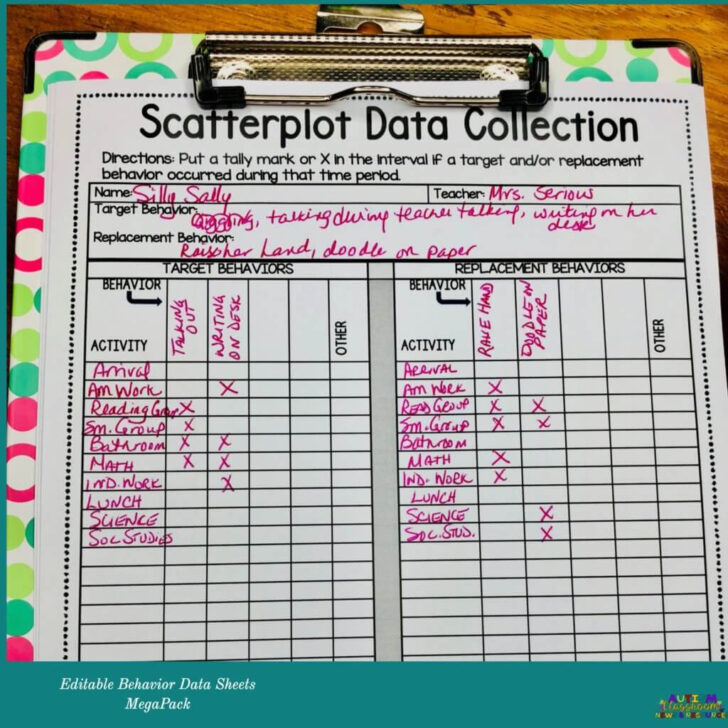 Scatterplot Data Collection
Directions: Put a tally mark or X in the interval if a target and/or replacement
behavior occurred during that time period.
Name: Silly Sally Teacher: Mrs. Serious
Target Behavior: talking during teacher talking, writing on her
desk
Replacement Behavior:
Raise her hand, doodle on paper
TARGET BEHAVIORS
BEHAVIOR
ACTIVITY
TALKING OUT
WRITING ON DESK
OTHER
Arrival
Am Work X
Reading Group X
Sm. Group X
Bathroom X X
MATH X X
IND. WORK X
LUNCH
SCIENCE
SOC STUDIES
REPLACEMENT BEHAVIORS
BEHAVIOR
ACTIVITY
RAISE HAND
DOODLE ON PAPER
OTHER
ARRIVAL
Am WORK X
READ GROUP X X
Sm. GROUP X X
Bathroom
MATH X
IND. WORK X
LUNCH
SCIENCE X
SOC. STUD. X
Editable Behavior Data Sheets
MegaPack
AUTISM
Classroom
NEWS & RESOURCES